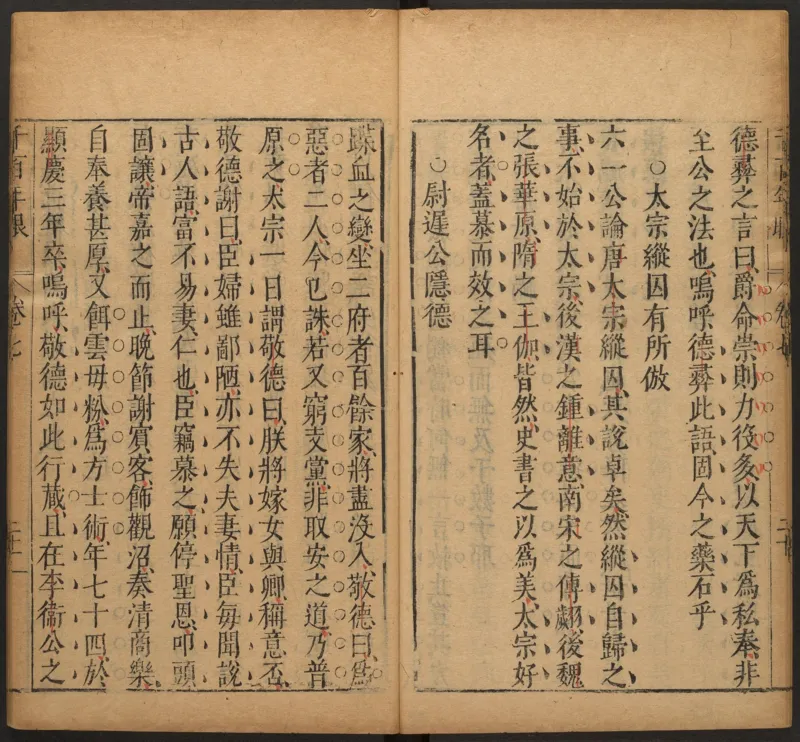 德彞之言曰爵命崇則力役多以天下爲私奉非
至公之法也嗚呼德彞此語固今之藥石乎
○太宗縱囚有所倣
六一公論唐太宗縱囚其說卓矣然縱囚自歸之
事不始於太宗後漢之鍾離意南宋之傅翽後魏
之張華原隋之王伽皆然史書之以爲美太宗好
名者蓋慕而效之耳
○尉遲公隱德
蹀血之變坐二府者百餘家將盡沒入敬德曰爲
惡者二人今已誅若又窮支黨非取安之道乃普
原之太宗一日謂敬德曰朕將嫁女與卿稱意否
敬德謝曰臣婦雖鄙陋亦不失夫妻情臣每聞說
古人語富不易妻仁也臣竊慕之願停聖恩叩頭
固讓帝嘉之而止晚節謝賓客飾觀沼奏清商樂
自奉養甚厚又餌雲母粉爲方士術年七十四於
顯慶三年卒嗚呼敬德如此行藏且在李衞公之
千百年眼
卷七